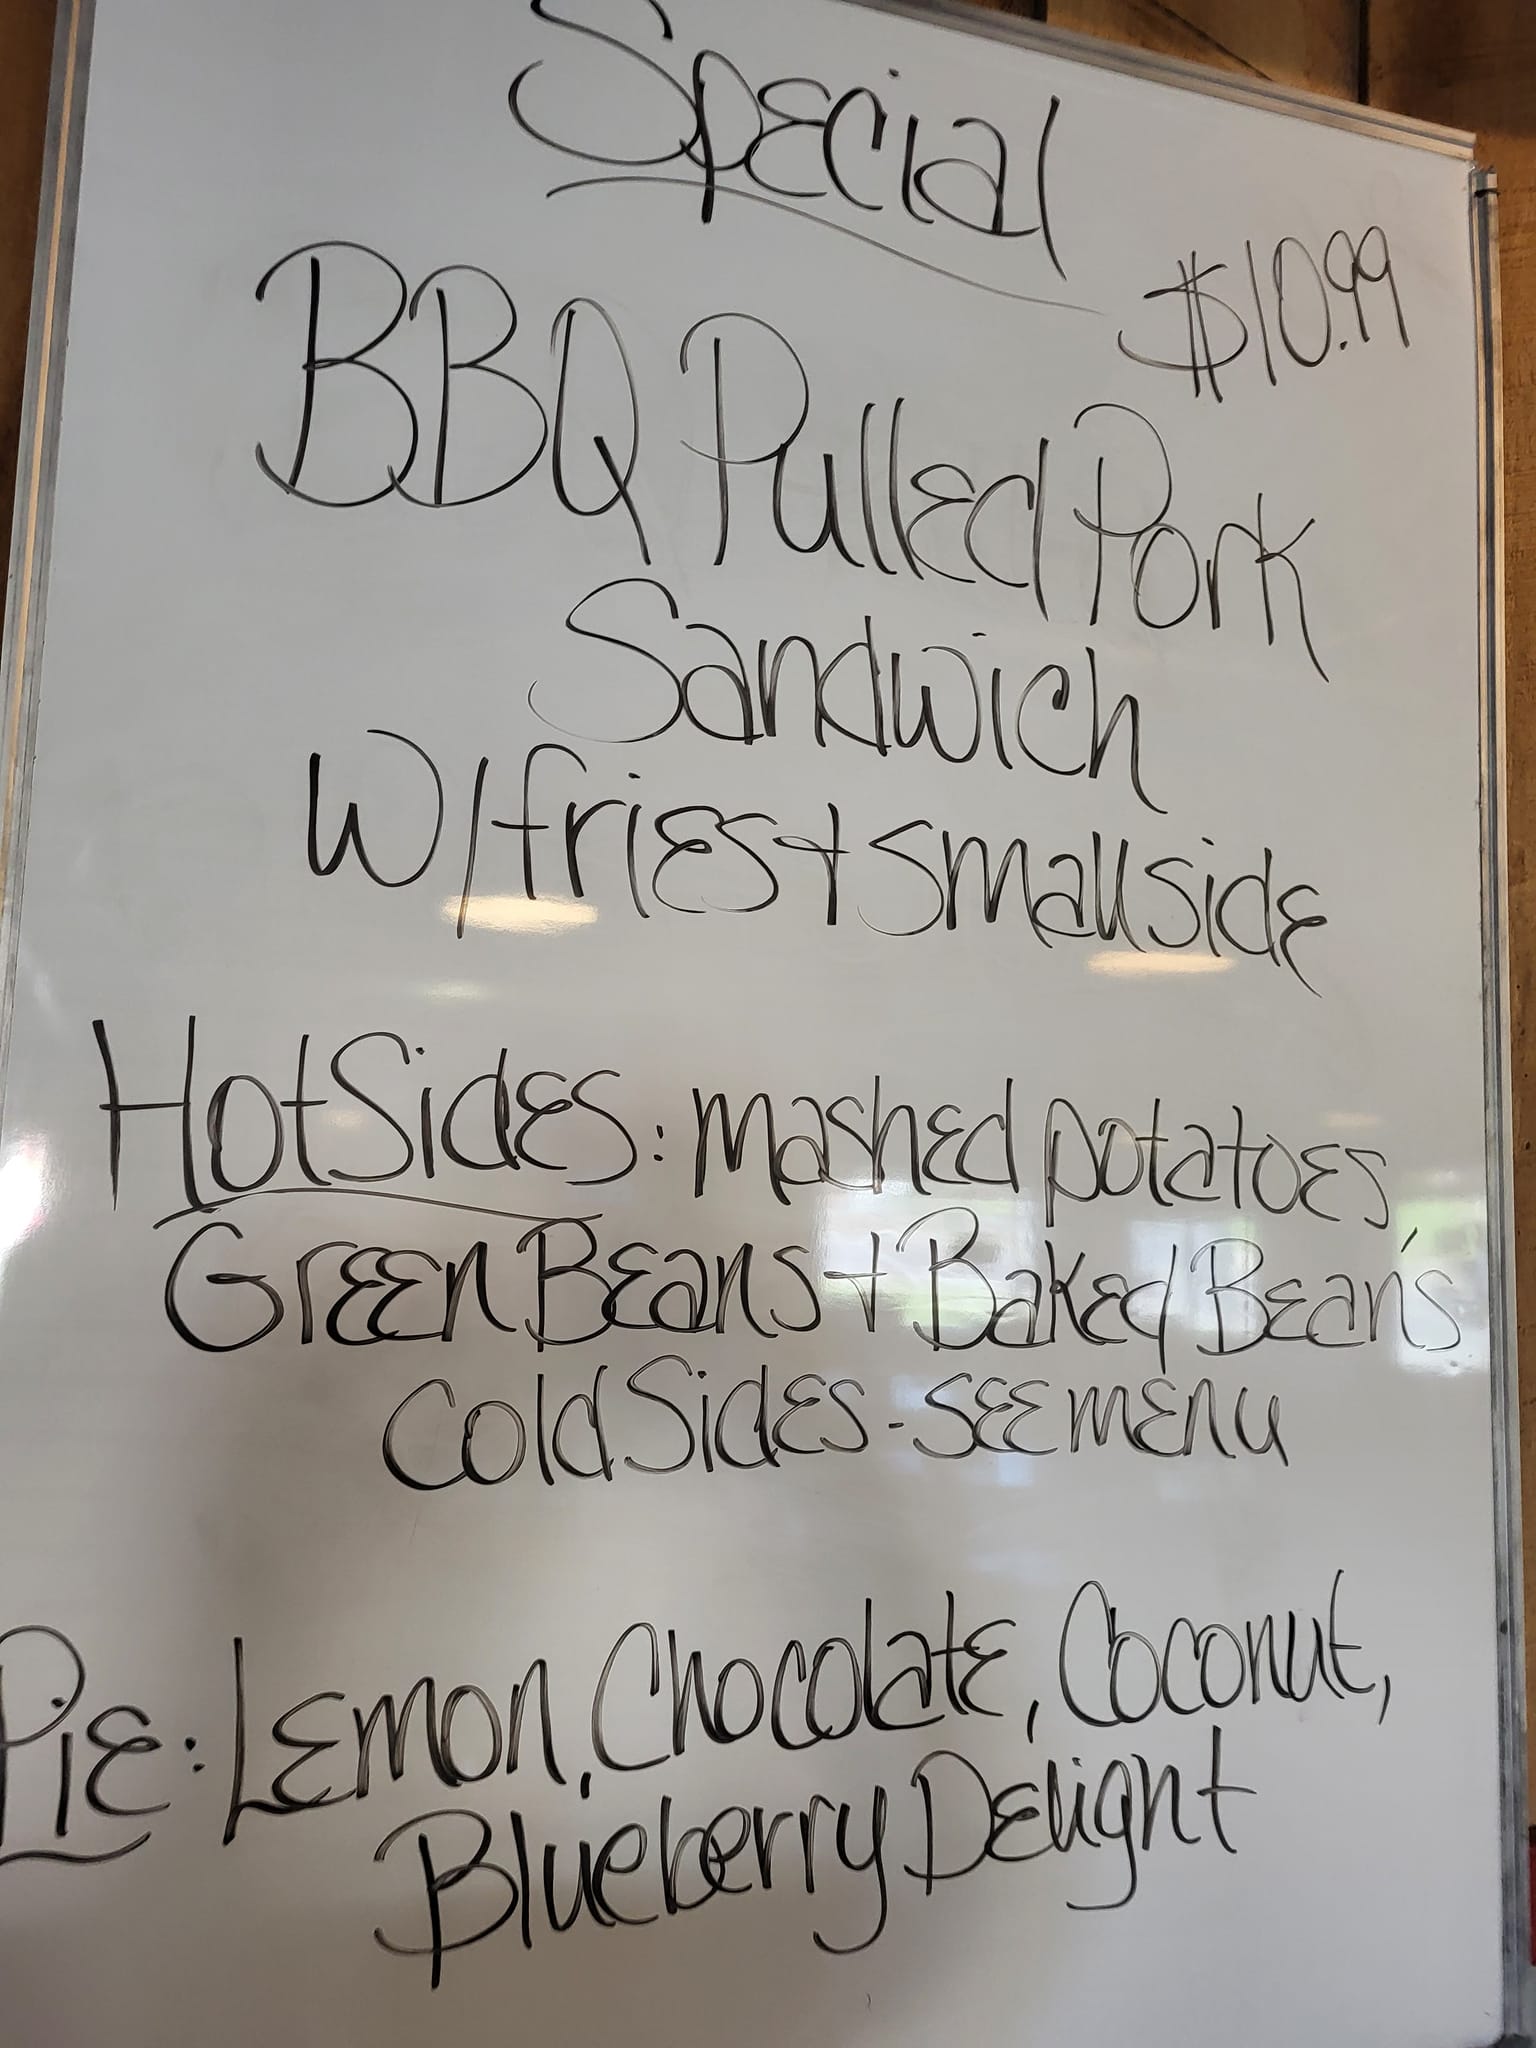 Special
$10.99
BBQ Pulled Pork
Sandwich
W/fries + small side
Hot Sides: mashed potatoes,
Green Beans + Baked Beans
Cold Sides - see menu
Pie: Lemon, Chocolate, Coconut,
Blueberry Delight